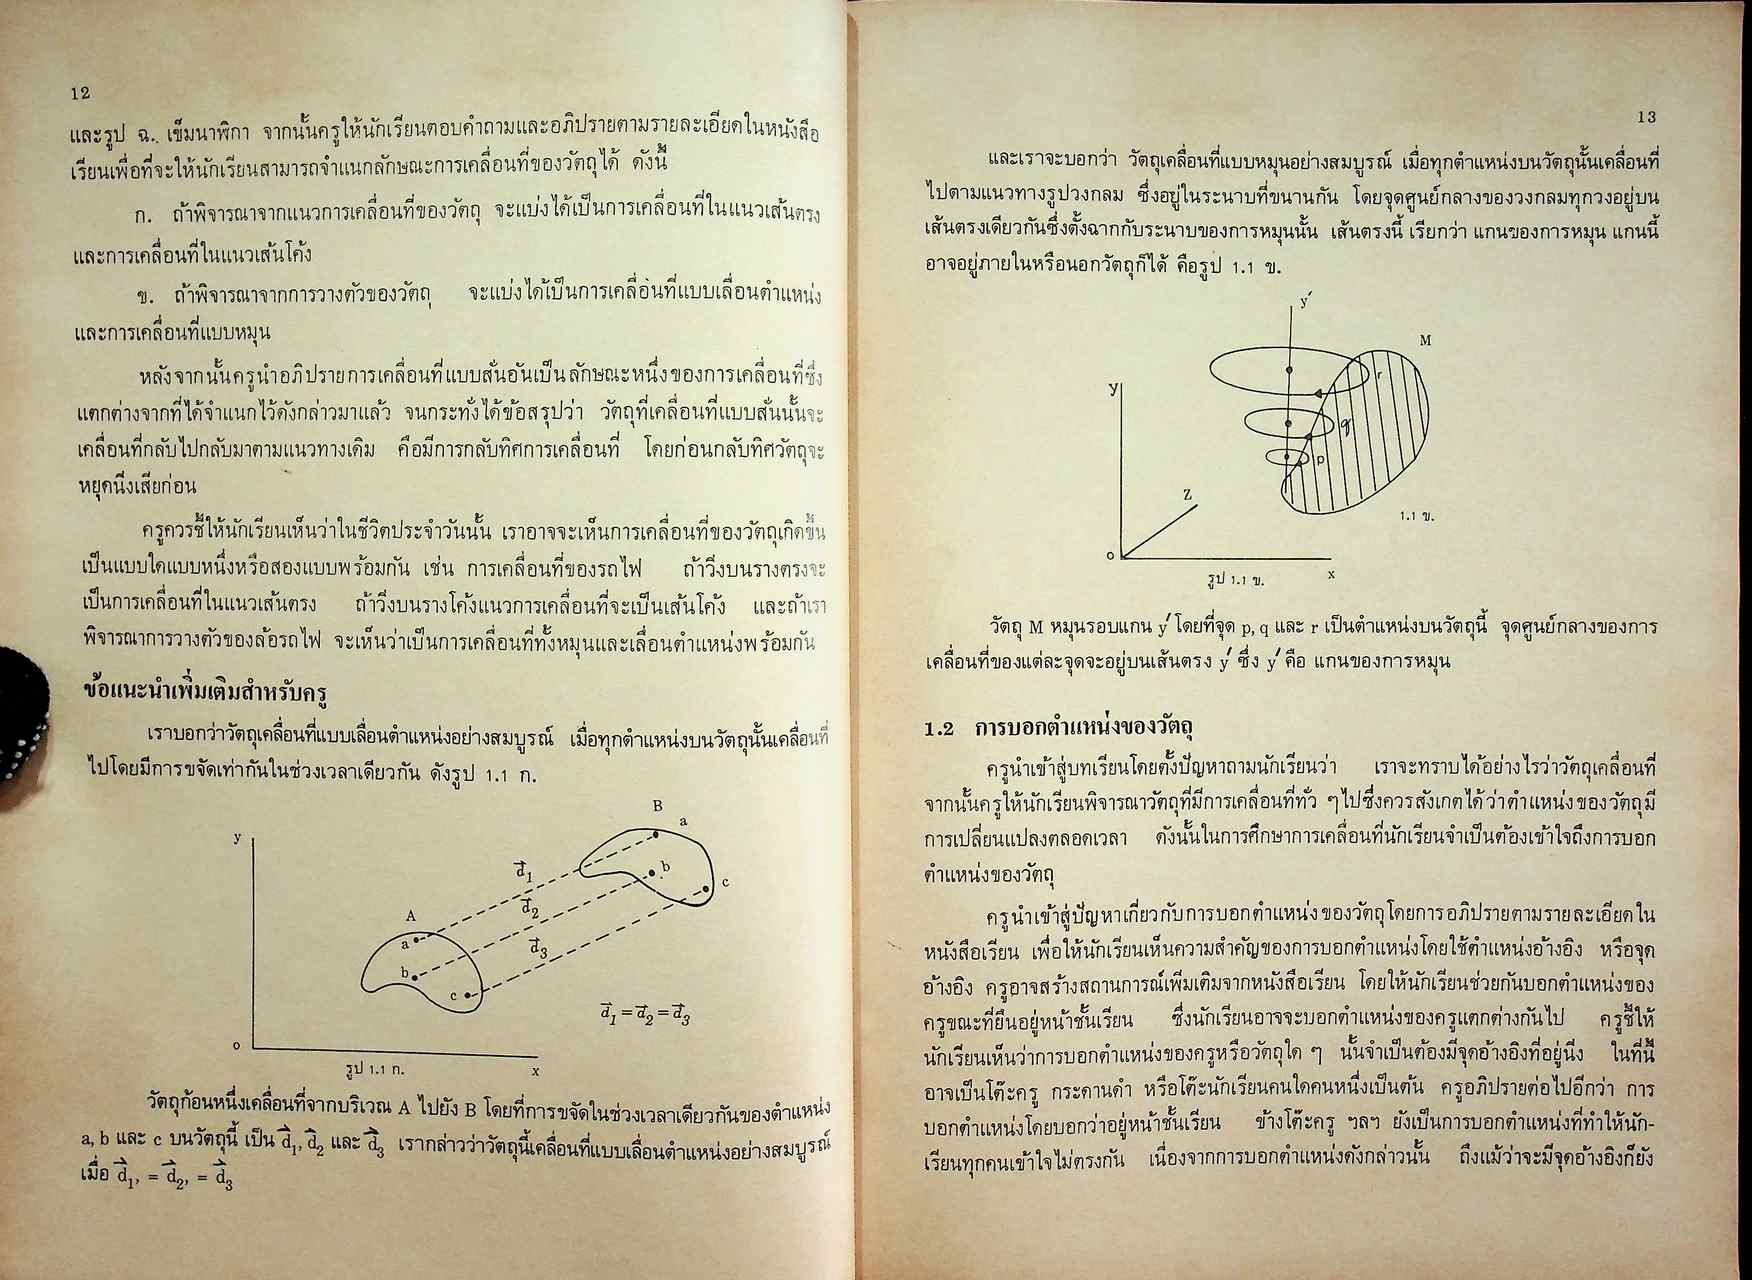 12
และรูป ฉ. เข็มนาฬิกา จากนั้นครูให้นักเรียนตอบคำถามและอภิปรายตามรายละเอียดในหนังสือ
เรียนเพื่อที่จะให้นักเรียนสามารถจำแนกลักษณะการเคลื่อนที่ของวัตถุได้ ดังนี้
ก. ถ้าพิจารณาจากแนวการเคลื่อนที่ของวัตถุ จะแบ่งได้เป็นการเคลื่อนที่ในแนวเส้นตรง
และการเคลื่อนที่ในแนวเส้นโค้ง
ข. ถ้าพิจารณาจากการวางตัวของวัตถุ จะแบ่งได้เป็นการเคลื่อนที่แบบเลื่อนตำแหน่ง
และการเคลื่อนที่แบบหมุน
หลังจากนั้นครูนำอภิปรายการเคลื่อนที่แบบสั่นอันเป็นลักษณะหนึ่งของการเคลื่อนที่ซึ่ง
แตกต่างจากที่ได้จำแนกไว้ดังกล่าวมาแล้ว จนกระทั่งได้ข้อสรุปว่า วัตถุที่เคลื่อนที่แบบสั่นนั้นจะ
เคลื่อนที่กลับไปกลับมาตามแนวทางเดิม คือมีการกลับทิศการเคลื่อนที่ โดยก่อนกลับทิศวัตถุจะ
หยุดนิ่งเสียก่อน
ครูควรชี้ให้นักเรียนเห็นว่าในชีวิตประจำวันนั้น เราอาจจะเห็นการเคลื่อนที่ของวัตถุเกิดขึ้น
เป็นแบบใดแบบหนึ่งหรือสองแบบพร้อมกัน เช่น การเคลื่อนที่ของรถไฟ ถ้าวิ่งบนรางตรงจะ
เป็นการเคลื่อนที่ในแนวเส้นตรง ถ้าวิ่งบนรางโค้งแนวการเคลื่อนที่จะเป็นเส้นโค้ง และถ้าเรา
พิจารณาการวางตัวของล้อรถไฟ จะเห็นว่าเป็นการเคลื่อนที่ทั้งหมุนและเลื่อนตำแหน่งพร้อมกัน
ข้อแนะนำเพิ่มเติมสำหรับครู
เราบอกว่าวัตถุเคลื่อนที่แบบเลื่อนตำแหน่งอย่างสมบูรณ์ เมื่อทุกตำแหน่งบนวัตถุนั้นเคลื่อนที่
ไปโดยมีการขจัดเท่ากันในช่วงเวลาเดียวกัน ดังรูป 1.1 ก.
B
a
y
b
c
d⃗1
d⃗2
d⃗3
A
a
b
c
d⃗1 = d⃗2 = d⃗3
o
x
รูป 1.1 ก.
วัตถุก้อนหนึ่งเคลื่อนที่จากบริเวณ A ไปยัง B โดยที่การขจัดในช่วงเวลาเดียวกันของตำแหน่ง
a, b และ c บนวัตถุนี้ เป็น d⃗1, d⃗2 และ d⃗3 เรากล่าวว่าวัตถุนี้เคลื่อนที่แบบเลื่อนตำแหน่งอย่างสมบูรณ์
เมื่อ d⃗1, = d⃗2, = d⃗3
13
และเราจะบอกว่า วัตถุเคลื่อนที่แบบหมุนอย่างสมบูรณ์ เมื่อทุกตำแหน่งบนวัตถุนั้นเคลื่อนที่
ไปตามแนวทางรูปวงกลม ซึ่งอยู่ในระนาบที่ขนานกัน โดยจุดศูนย์กลางของวงกลมทุกวงอยู่บน
เส้นตรงเดียวกันซึ่งตั้งฉากกับระนาบของการหมุนนั้น เส้นตรงนี้ เรียกว่า แกนของการหมุน แกนนี้
อาจอยู่ภายในหรือนอกวัตถุก็ได้ คือรูป 1.1 ข.
y′
M
r
y
q
p
Z
1.1 ข.
o
x
รูป 1.1 ข.
วัตถุ M หมุนรอบแกน y′ โดยที่จุด p, q และ r เป็นตำแหน่งบนวัตถุนี้ จุดศูนย์กลางของการ
เคลื่อนที่ของแต่ละจุดจะอยู่บนเส้นตรง y′ ซึ่ง y′ คือ แกนของการหมุน
1.2 การบอกตำแหน่งของวัตถุ
ครูนำเข้าสู่บทเรียนโดยตั้งปัญหาถามนักเรียนว่า เราจะทราบได้อย่างไรว่าวัตถุเคลื่อนที่
จากนั้นครูให้นักเรียนพิจารณาวัตถุที่มีการเคลื่อนที่ทั่ว ๆไปซึ่งควรสังเกตได้ว่าตำแหน่งของวัตถุมี
การเปลี่ยนแปลงตลอดเวลา ดังนั้นในการศึกษาการเคลื่อนที่นักเรียนจำเป็นต้องเข้าใจถึงการบอก
ตำแหน่งของวัตถุ
ครูนำเข้าสู่ปัญหาเกี่ยวกับการบอกตำแหน่งของวัตถุโดยการอภิปรายตามรายละเอียดใน
หนังสือเรียน เพื่อให้นักเรียนเห็นความสำคัญของการบอกตำแหน่งโดยใช้ตำแหน่งอ้างอิง หรือจุด
อ้างอิง ครูอาจสร้างสถานการณ์เพิ่มเติมจากหนังสือเรียน โดยให้นักเรียนช่วยกันบอกตำแหน่งของ
ครูขณะที่ยืนอยู่หน้าชั้นเรียน ซึ่งนักเรียนอาจจะบอกตำแหน่งของครูแตกต่างกันไป ครูชี้ให้
นักเรียนเห็นว่าการบอกตำแหน่งของครูหรือวัตถุใด ๆ นั้นจำเป็นต้องมีจุดอ้างอิงที่อยู่นิ่ง ในที่นี้
อาจเป็นโต๊ะครู กระดานดำ หรือโต๊ะนักเรียนคนใดคนหนึ่งเป็นต้น ครูอภิปรายต่อไปอีกว่า การ
บอกตำแหน่งโดยบอกว่าอยู่หน้าชั้นเรียน ข้างโต๊ะครู ฯลฯ ยังเป็นการบอกตำแหน่งที่ทำให้นัก-
เรียนทุกคนเข้าใจไม่ตรงกัน เนื่องจากการบอกตำแหน่งดังกล่าวนั้น ถึงแม้ว่าจะมีจุดอ้างอิงก็ยัง